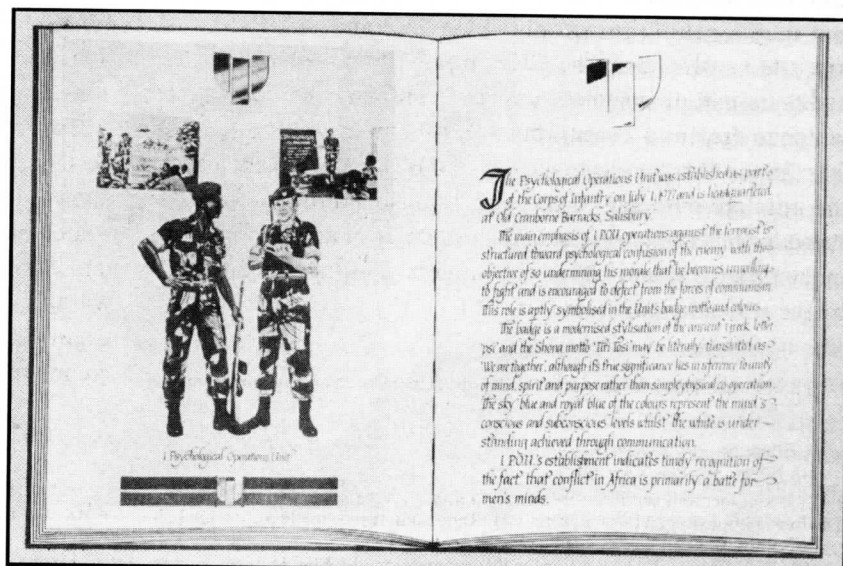 1 Psychological Operations Unit
The Psychological Operations Unit was established as part
of the Corps of Infantry on July 1, 1977 and is headquartered
at Old Cranborne Barracks, Salisbury.
The main emphasis of 1 POU operations against the terrorist is
structured toward psychological confusion of the enemy with the
objective of so undermining his morale that he becomes unwilling
to fight and is encouraged to defect from the forces of communism.
This role is aptly symbolised in the Unit's badge, motto and colours.
The badge is a modernised stylisation of the ancient Greek letter
'psi' and the Shona motto 'Tiri Tose' may be literally translated as
'We are together', although its true significance lies in reference to unity
of mind, spirit and purpose rather than simple physical co-operation.
The sky blue and royal blue of the colours represent the mind's
conscious and subconscious levels whilst the white is under-
standing achieved through communication.
1 POU's establishment indicates timely recognition of
the fact that conflict in Africa is primarily a battle for
men's minds.